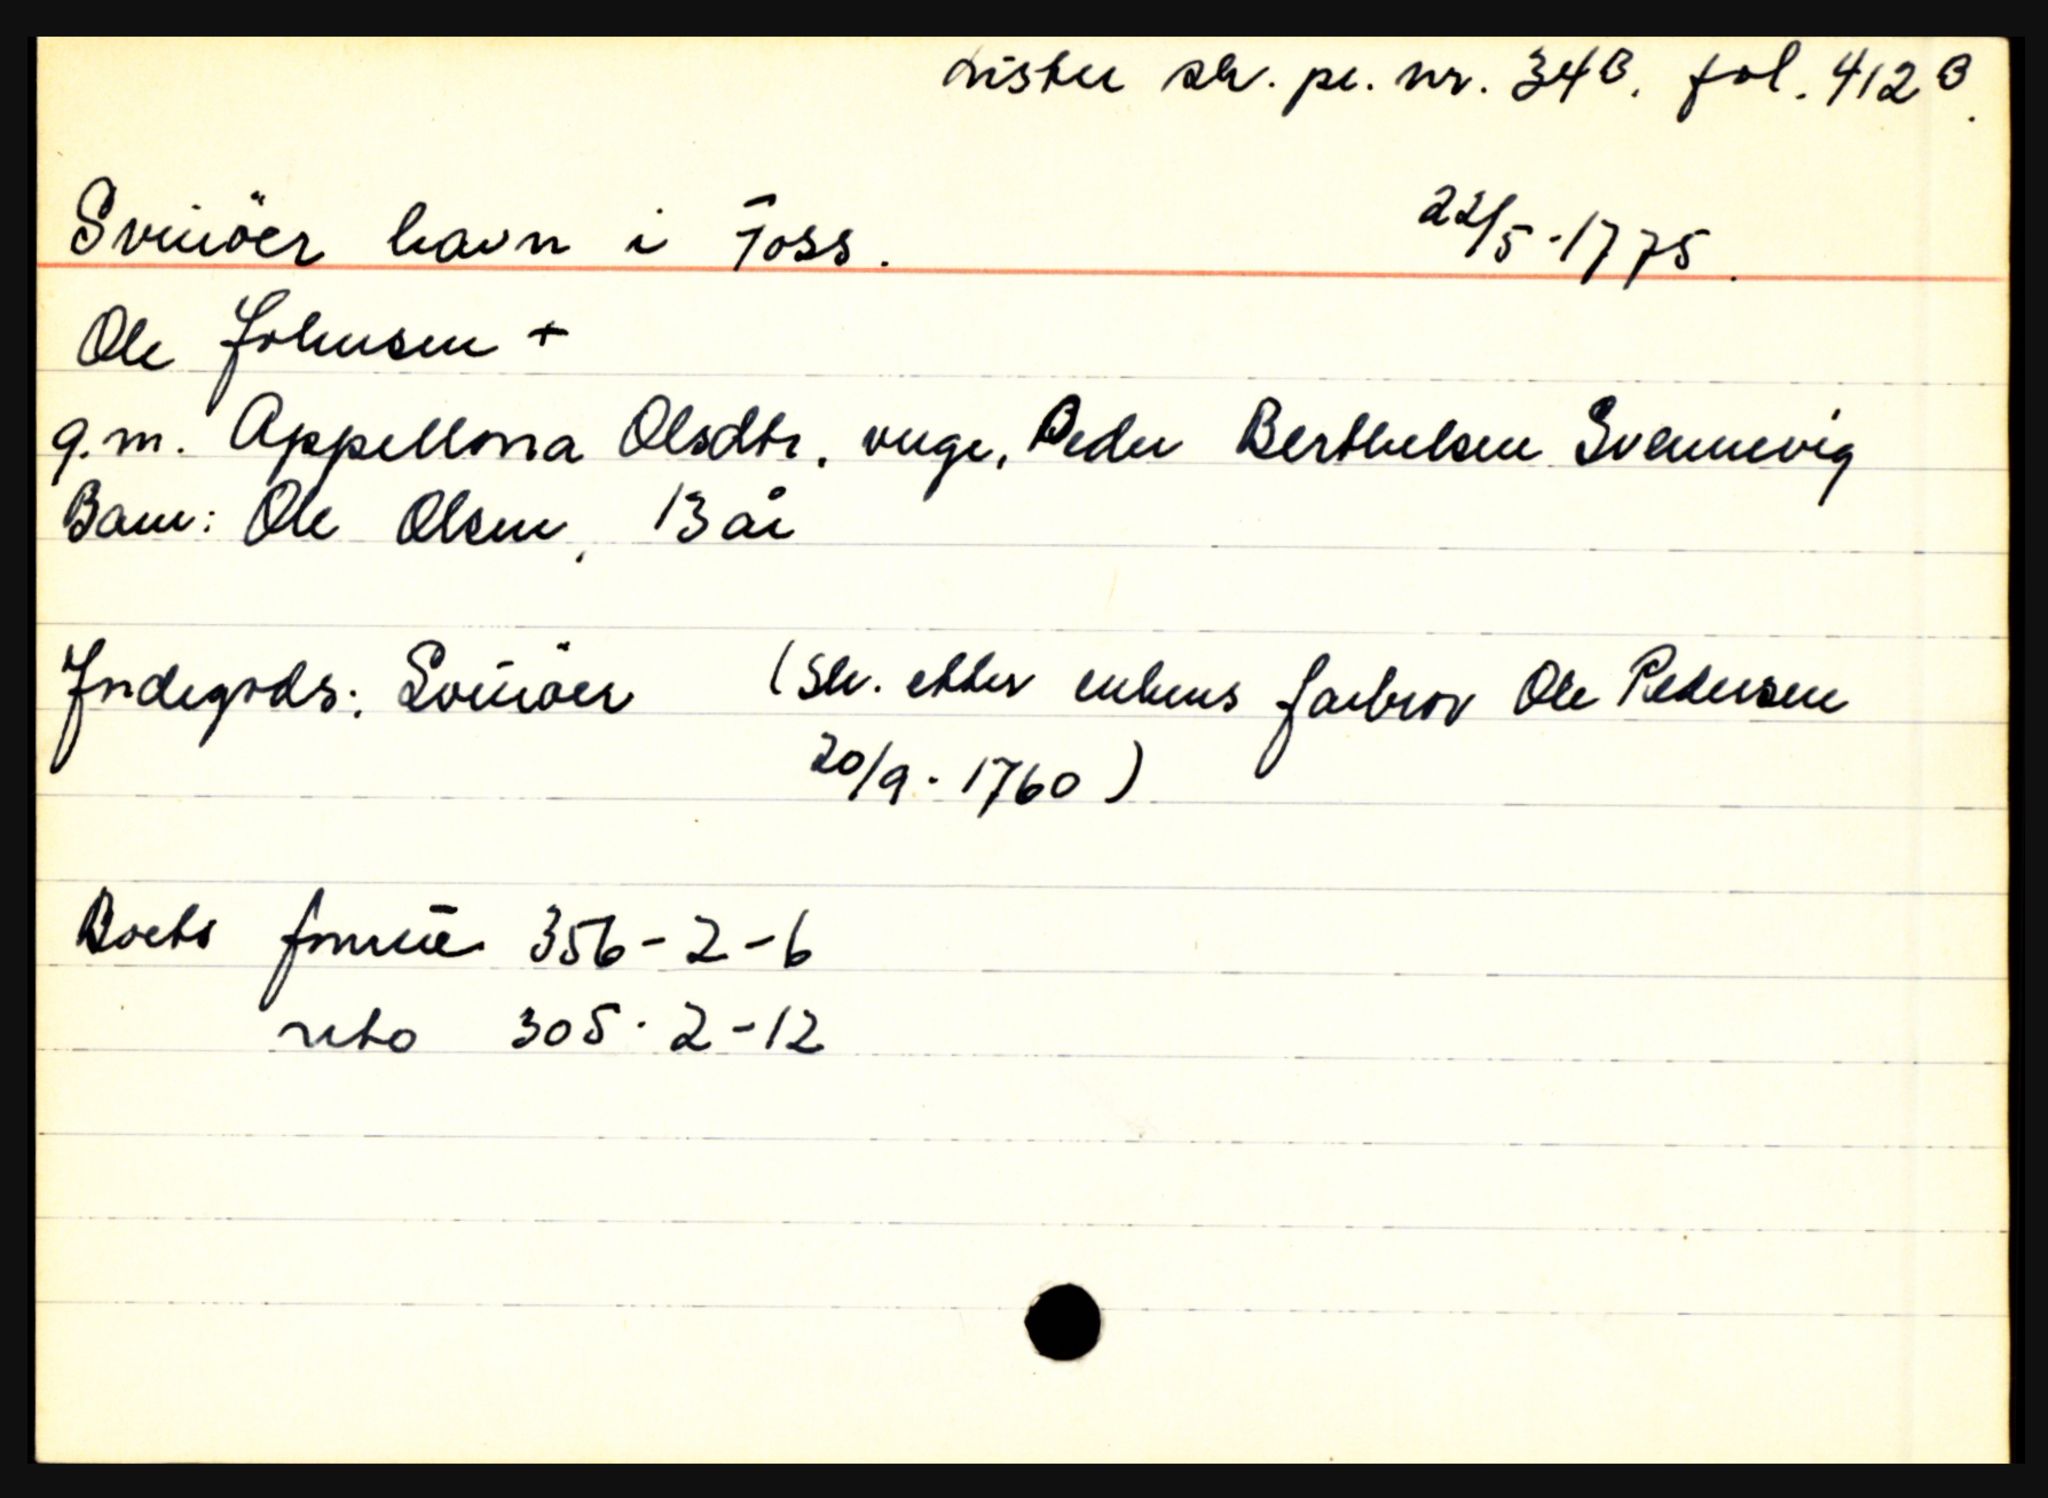 Lister sk. pr. nr. 34B. fol. 412B.
Svinöer havn i Foss. 22/5-1775.
Ole Johnsen +
g.m. Appellona Olsdtr. verge, Peder Berthelsen Svennevig
Barn: Ole Olsen, 13 år
Jndegods: Svinöer (Sk. etter enkens farbror Ole Pedersen
20/9-1760)
Boets formue 356-2-6
neto 305-2-12